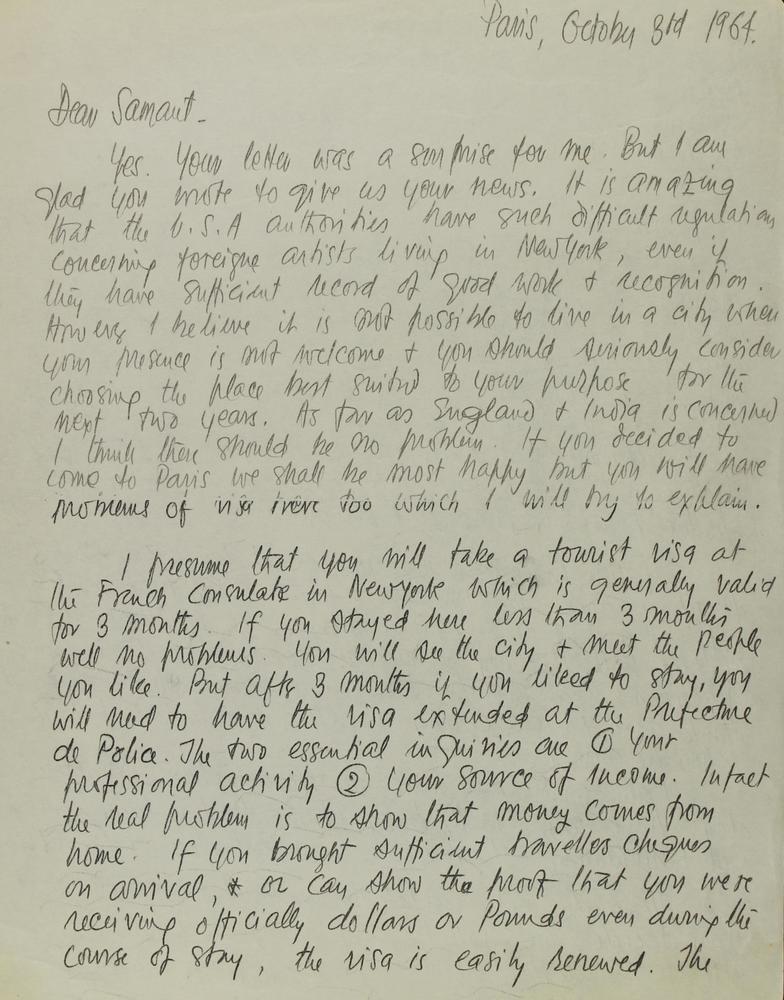 Paris, October 3rd 1964.
Dear Samant -
Yes. Your letter was a surprise for me. But I am
glad you wrote to give us your news. It is amazing
that the U.S.A authorities have such difficult regulations
concerning foreigne artists living in NewYork, even if
they have sufficient record of good work + recognition.
However I believe it is not possible to live in a city when
your presence is not welcome + you should seriously consider
choosing the place best suited to your purpose for the
next two years. As far as England + India is concerned
I think there should be no problem. If you decided to
come to Paris we shall be most happy but you will have
problems of visa here too which I will try to explain.
I presume that you will take a tourist visa at
the French Consulate in Newyork which is generally valid
for 3 months. If you stayed here less than 3 months
well no problems. You will see the city + meet the people
you like. But after 3 months if you liked to stay, you
will need to have the visa extended at the Prefecture
de Police. The two essential inquiries are ① Your
professional activity ② Your source of income. Infact
the real problem is to show that money comes from
home. If you brought sufficient travelles cheques
on arrival, or can show the proof that you were
receiving officially dollars or Pounds even during the
course of stay, the visa is easily renewed. The